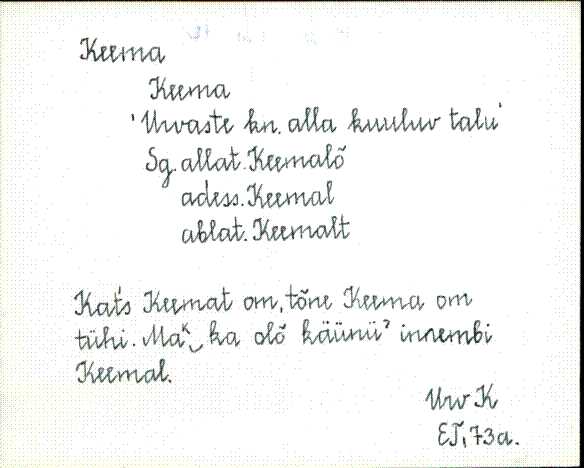 Keema
Keema
'Urvaste kn. alla kuuluv talu'
Sg. allat. Keemalõ
adess. Keemal
ablat. Keemalt
Kat's Keemat om, tõne Keema om
tühi. Maᴷ‿ka olõ käünüˀ innembi
Keemal.
Urv K
ET, 73a.